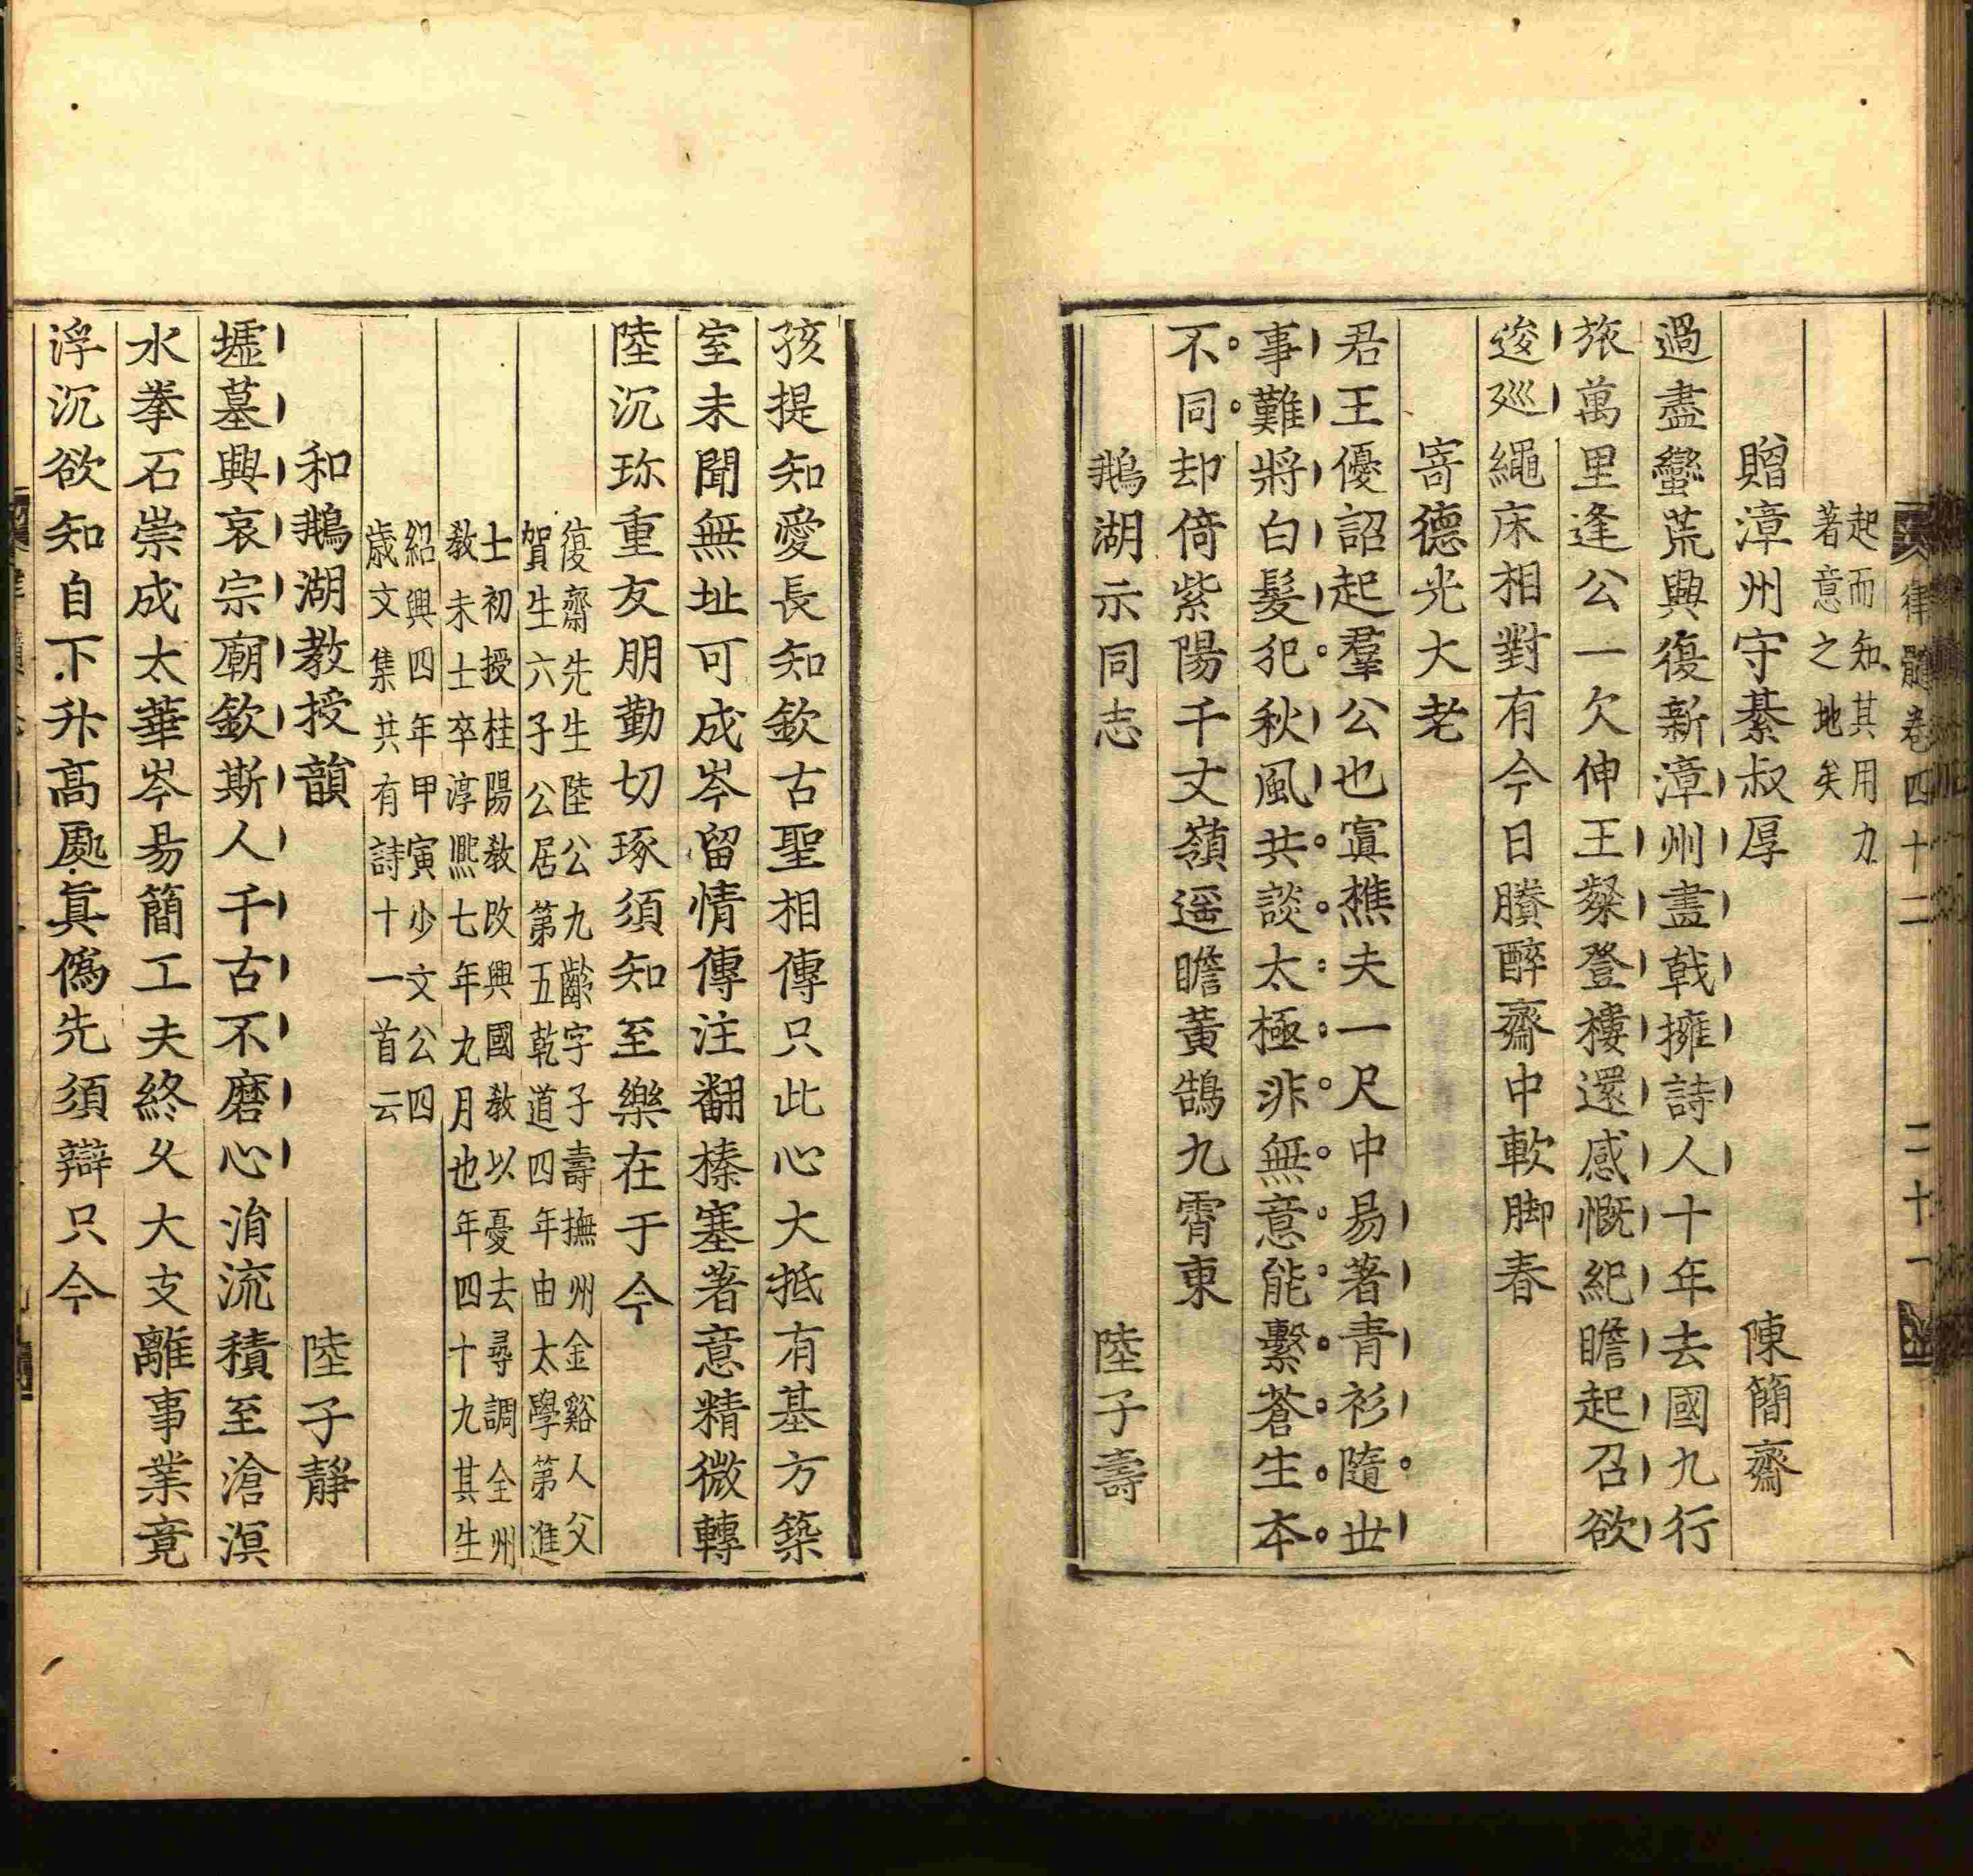 律髓卷四十二 二十一
起而知其用力
著意之地矣
贈漳州守綦叔厚 陳簡齋
過盡蠻荒興復新漳州畫戟擁詩人十年去國九行
旅萬里逢公一欠伸王粲登樓還感慨紀瞻起召欲
逡廵繩床相對有今日賸醉齋中軟脚春
寄德光大老
君王優詔起羣公也寘樵夫一尺中易著青衫隨世
事難將白髮犯秋風共談太極非無意能繫蒼生本
不同却倚紫陽千丈嶺遥瞻黃鵠九霄東
鵝湖示同志 陸子壽
孩提知愛長知欽古聖相傳只此心大抵有基方築
室未聞無址可成岑留情傳注翻榛塞著意精微轉
陸沉珎重友朋勤切琢須知至樂在于今
復齋先生陸公九齡字子壽撫州金谿人父
賀生六子公居第五乾道四年由太學第進
士初授桂陽教改興國教以憂去尋調全州
教未士卒淳熈七年九月也年四十九其生
紹興四年甲寅少文公四
歳文集共有詩十一首云
和鵝湖教授韻 陸子靜
墟墓興哀宗廟欽斯人千古不磨心涓流積至滄溟
水拳石崇成太華岑易簡工夫終乆大支離事業竟
浮沉欲知自下升高處眞僞先須辯只今